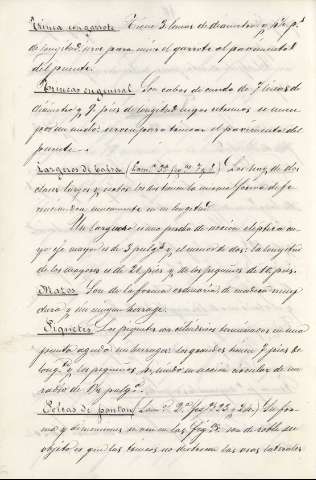 Trinca con garrote Tiene 3 líneas de diámetro y pies
de longitud, sirve para unir el garrote al pavimento
del puente.
Trincas en general Son cabos de cuerda de 7 líneas de
diámetro y 9 pies de longitud cuyos estremos se unen
por un nudo: sirven para trincar el pavimento del
puente.
Largeros de balsa (Lam.ª 3ª fig.ª 7 y 8) Los hay de dos
clases largos y cortos los dos tienen la misma forma dife
renciandose unicamente en su longitud.
Un larguero es una pieza de sección elíptica cu
yo eje mayor es de 3 pulg.s y el menor de dos: la longitud
de los mayores es de 21 pies y de los pequeños de 10 pies.
Mazos. Son de la forma ordinaria de madera muy
dura y sin ningun herrage.
Piquetes Los piquetes son cilindros terminados en una
punta aguda sin herrages los grandes tienen 7 pies de
long.d y los pequeños pies, siendo su sección circular de un
radio de pulg.s
Poleas de ponton (Lam.ª 2.ª fig.s 23 y 24.) Su for
ma y dimensiones se ven en las fig.s son de roble su
objeto es que las trincas no destruyan las caras laterales